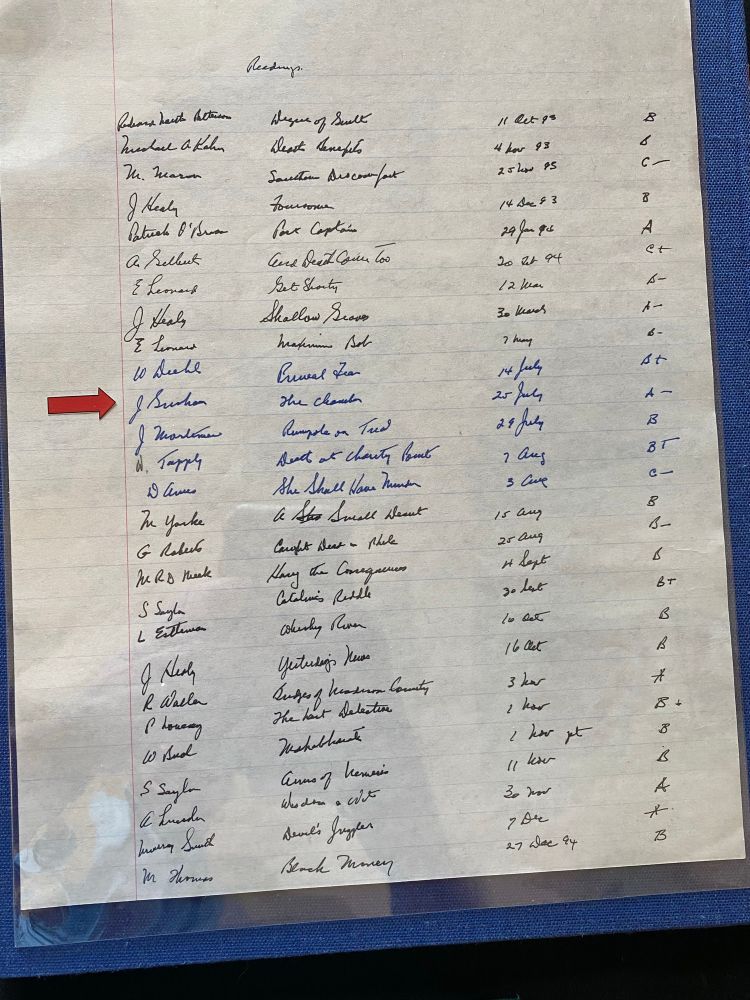 Readings.
Richard North Patterson Degree of Guilt 11 Oct 93 B
Michael A Kahn Death Benefits 4 Nov 93 B
M. Maron Southern Discomfort 25 Nov C-
J Healy Foursome 14 Dec 93 B
Patrick O'Brian Post Captain 29 Jan 94 A
A Gilbert And Death Came Too 20 94 C+
E Leonard Get Shorty 12 Mar B-
J Healy Shallow Graves 30 March A-
E Leonard Maximum Bob 7 May B-
W Diehl Primal Fear 14 July B+
J Grisham The Chamber 25 July A-
J Mortimer Rumpole on Trial 29 July B
W. Tapply Death at Charity Point 7 Aug B+
D Ames She Shall Have Murder 3 Aug C-
M Yorke A Small Deceit 15 Aug B
G Roberts 25 Aug B-
M R D Meek Hang the Consequences Sept B
S Saylor Catalina's Riddle 30 Sept B+
L Estleman Whiskey River 10 Oct B
J Healy Yesterday's News 16 Oct B
R Waller Bridges of Madison County 3 Nov
P Lovesey The Last Detective 1 Nov B+
W Buck Mahabharata 1 Nov B
S Saylor Arms of Nemesis 11 Nov B
A Lincoln Wisdom & Wit 30 Nov A
Murray Smith Devil's Juggler 7 Dec
M Thomas Black Money 27 Dec 94 B